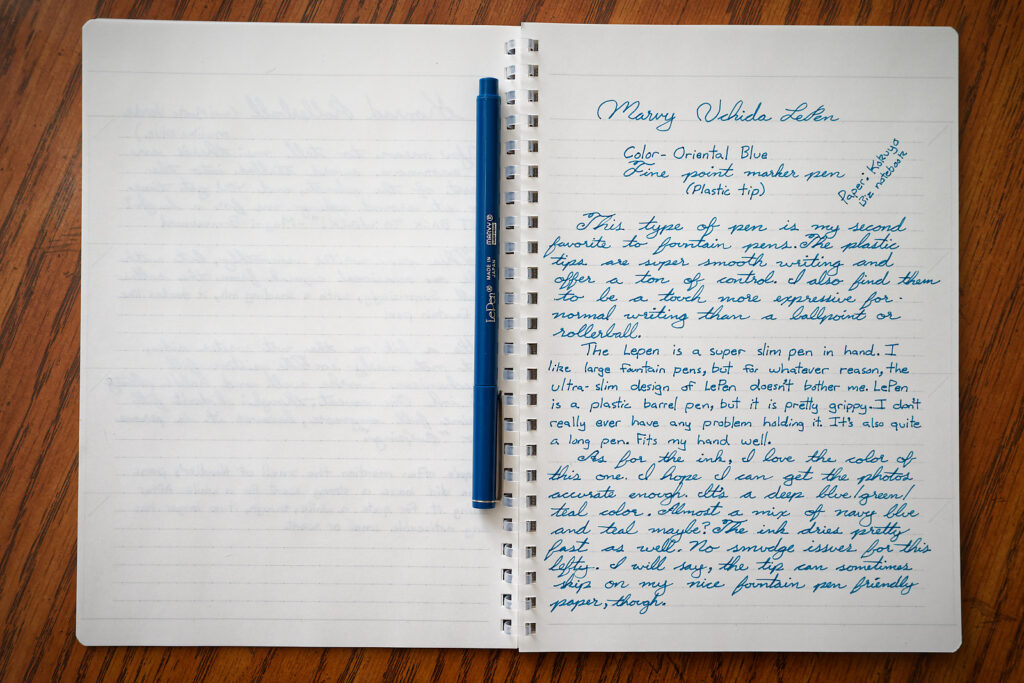 LePen
MADE IN
JAPAN
MARVY
Marvy Uchida LePen
Color- Oriental Blue
Fine point marker pen
(Plastic tip)
Paper: Kokuyo
Biz notebook
This type of pen is my second
favorite to fountain pens. The plastic
tips are super smooth writing and
offer a ton of control. I also find them
to be a touch more expressive for
normal writing than a ballpoint or
rollerball.
The Lepen is a super slim pen in hand. I
like large fountain pens, but for whatever reason, the
ultra-slim design of LePen doesn't bother me. LePen
is a plastic barrel pen, but it is pretty grippy. I don't
really ever have any problem holding it. It's also quite
a long pen. Fits my hand well.
As for the ink, I love the color of
this one. I hope I can get the photos
accurate enough. It's a deep blue/green/
teal color. Almost a mix of navy blue
and teal maybe? The ink dries pretty
fast as well. No smudge issues for this
lefty. I will say, the tip can sometimes
skip on my nice fountain pen friendly
paper, though.